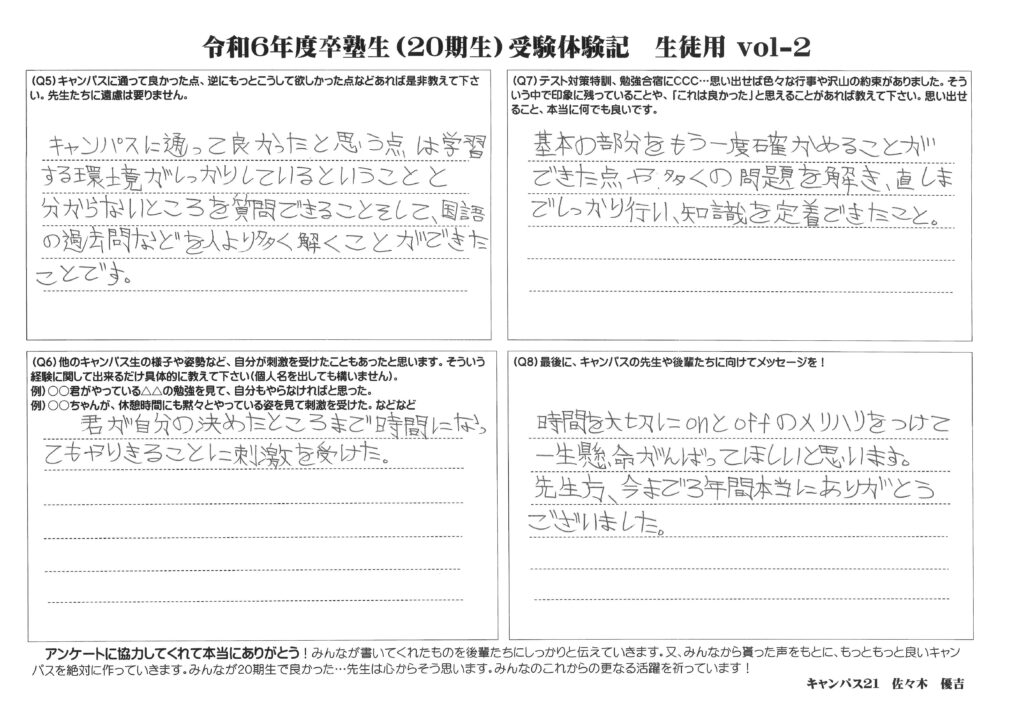 令和6年度卒塾生（20期生）受験体験記　生徒用 vol-2
（Q5）キャンパスに通って良かった点、逆にもっとこうして欲しかった点などあれば是非教えて下さ
い。先生たちに遠慮は要りません。
キャンパスに通って良かったと思う点は学習
する環境がしっかりしているということと
分からないところを質問できることそして、国語
の過去問などを人より多く解くことができた
ことです。
（Q6）他のキャンパス生の様子や姿勢など、自分が刺激を受けたこともあったと思います。そういう
経験に関して出来るだけ具体的に教えて下さい（個人名を出しても構いません）。
例）○○君がやっている△△の勉強を見て、自分もやらなければと思った。
例）○○ちゃんが、休憩時間にも黙々とやっている姿を見て刺激を受けた。などなど
君が自分の決めたところまで時間になっ
てもやりきることに刺激を受けた。
（Q7）テスト対策特訓、勉強合宿にCCC…思い出せば色々な行事や沢山の約束がありました。そう
いう中で印象に残っていることや、「これは良かった」と思えることがあれば教えて下さい。思い出せ
ること、本当に何でも良いです。
基本の部分をもう一度確かめることが
できた点や多くの問題を解き、直しま
でしっかり行い、知識を定着できたこと。
（Q8）最後に、キャンパスの先生や後輩たちに向けてメッセージを！
時間を大切にonとoffのメリハリをつけて
一生懸命がんばってほしいと思います。
先生方、今まで3年間本当にありがとう
ございました。
アンケートに協力してくれて本当にありがとう！みんなが書いてくれたものを後輩たちにしっかりと伝えていきます。又、みんなから貰った声をもとに、もっともっと良いキャン
パスを絶対に作っていきます。みんなが20期生で良かった…先生は心からそう思います。みんなのこれからの更なる活躍を祈っています！
キャンパス21　佐々木　優吉